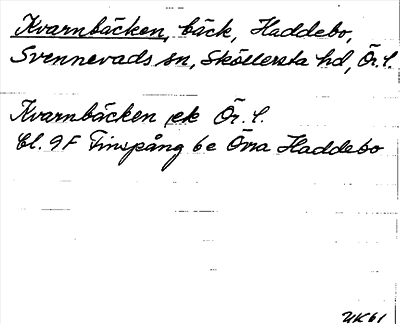 Kvarnbäcken, bäck, Haddebo,
Svennevads sn, Sköllersta hd, Ör. l.
Kvarnbäcken ek Ör. l.
Bl. 9F Finspång 6e Övra Haddebo
UK61